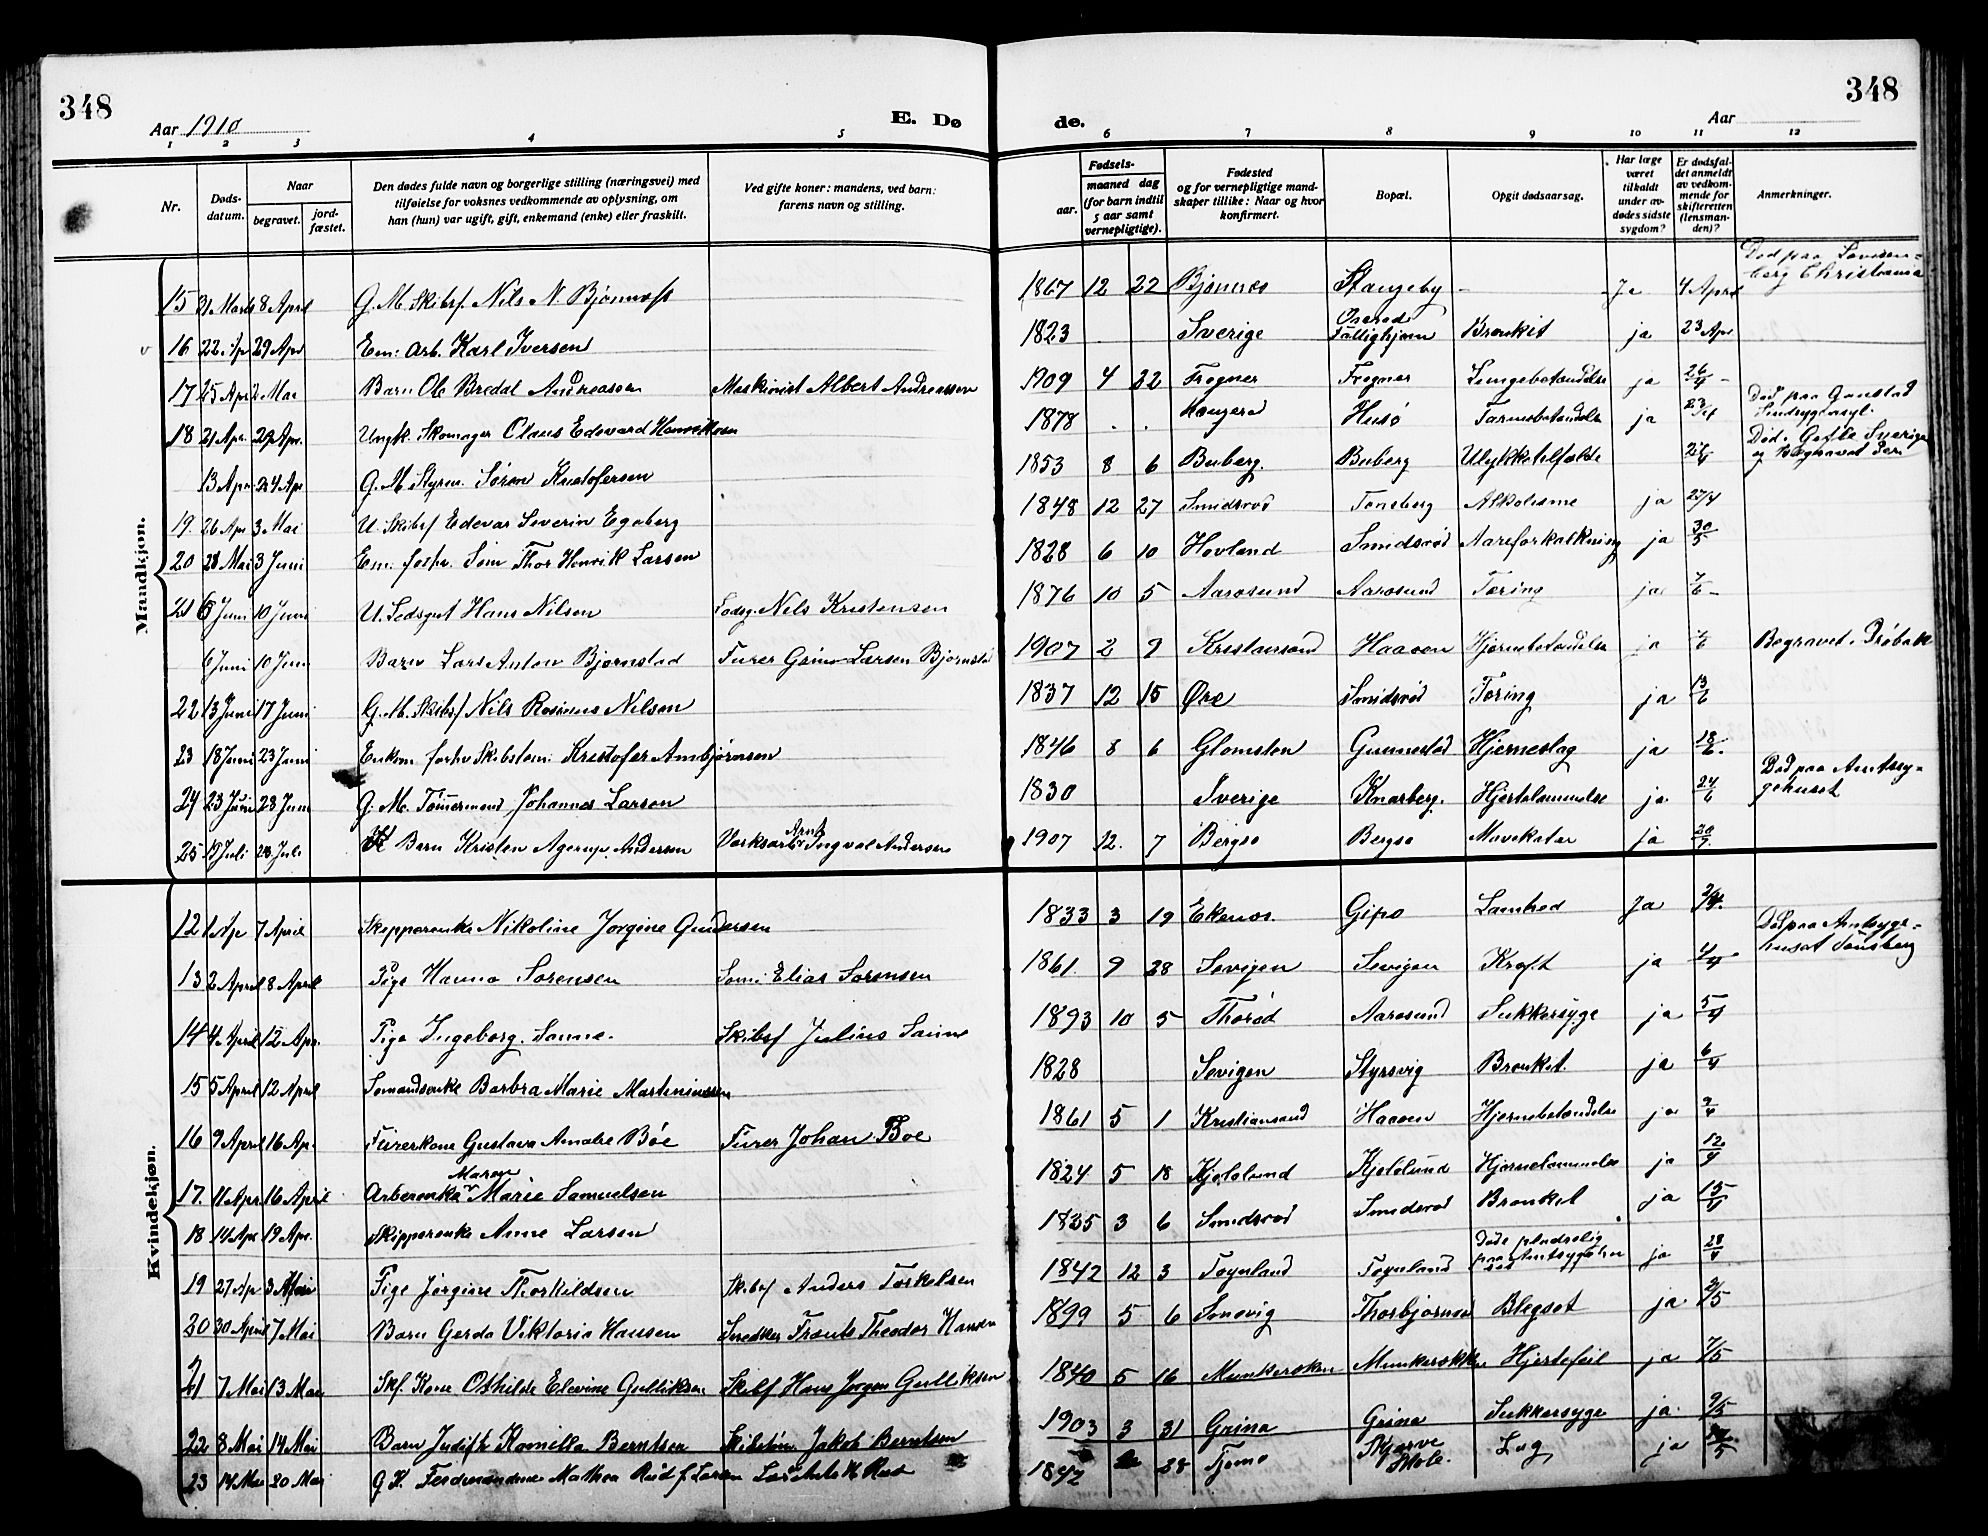 348
348
Aar 1910
E. Dø
de.
Aar
1 2 3 4 5 6 7 8 9 10 11 12
Nr.
Døds-
datum.
Naar
begravet.
jord-
fæstet.
Den dødes fulde navn og borgerlige stilling (næringsvei) med
tilføielse for voksnes vedkommende av oplysning, om
han (hun) var ugift, gift, enkemand (enke) eller fraskilt.
Ved gifte koner: mandens, ved barn:
farens navn og stilling.
Fødsels-
aar.
maaned dag
(for barn indtil
5 aar samt
vernepligtige).
Fødested
og for vernepligtige mand-
skaper tillike: Naar og hvor
konfirmert.
Bopæl.
Opgit dødsaarsag.
Har læge
været
tilkaldt
under av-
dødes sidste
sygdom?
Er dødsfal-
det anmeldt
av vedkom-
mende for
skifteretten
(lensman-
den)?
Anmerkninger.
Mandkjøn.
15 31 Marts 8 April G. M. Skibsf Nils N. 1867 12 22 Bjønnes Stangeby - Ja 4 April Død paa
Christiania
16 22 Ap 29 Apr Em. Arb. Karl Iversen 1823 Sverige Fattighjem Bronkit ja 23 Apr
17 25 Apr 2 Mai Barn Ole Bredal Andreassen Maskinist Albert Andreassen 1909 4 22 Frogner Frogner Lungebetændelse ja 26/4
18 21 Apr. 29 Apr. Ungk. Skomager Claus Edevard 1878 Husø Tarmbetændelse ja Død paa Gaustad
Sindsygeasyl.
13 Apr. 24 Apr G. M. Styrm. Søren Kristofersen 1853 8 6 Buberg. Buberg Ulykkestilfælde Død i Gefle Sverige
og Begravet der.
19. 26 Apr 3 Mai U. Skibsf Edvar Severin Egeberg 1848 12 27 Smidsrød Tønsberg Alkolisme ja 27/4
20 28 Mai 3 Juni Em. forhv. Søm Thor Henrik Larsen 1828 6 10 Hovland Smidsrød Aareforkalkning ja 30/5
21 6 Juni 10 Juni U. Lodsgut Hans Nilsen Lodsg. Nils Kristensen 1876 10 5 Aarøsund Aarøsund Tæring ja 7/6
6 Juni 10 Juni Barn Lars Anton Bjørnstad Furer Larsen Bjørnstad 1907 2 9 Kristiansand Haaøen Hjernebetændelse ja Begravet i Drøbak
22 13 Juni 17 Juni G. M. Skibsf Nils Rasmus Nilsen 1837 12 15 Øre Smidsrød Tæring ja 13/6
23 18 Juni 23 Juni Enkem. forhv Skibstøm. Kristofer Ambjørnsen 1846 8 6 Glomsten Gunnestad Hjerneslag ja 18/6
24 23 Juni 28 Juni G. M. Tømmermand Johannes Larsen 1830 Sverige Knarberg. Hjertelammelse ja 24/6 Død paa Amtssy-
gehuset
25 19 Juli 28 Juli Barn Kristen Agerup Andersen Verksarb Arnt Ingval Andersen 1907 12. 7 Bergsø Bergsø Mavekatar ja 20/7
Kvindekjøn.
12 1 Ap 7 April Skipperenke Nikoline Jørgine Gundersen 1833 3 19 Ekenes Gipø Lamhed Ja
13 2 April 8 April Pige Hanna Sørensen Søm. Elias Sørensen 1861 9 28 Søvigen Søvigen Kræft ja 4/4 Død paa Amtsyge-
huset Tønsberg
14 4 April 12 Apr. Pige Ingeborg Sanne. Skibsf Julius Sanne 1893 10 5 Thorød Aarøsund Sukkersyge ja 5/4
15 5 April 12 April Sømandsenke Barbra Marie Martiniussen 1828 Søvigen Styrsvig Bronkit. ja 6/4
16 9 April 16 Ap. Furerkone Gustava Amalie Bøe Furer Johan Bøe 1861 5 1 Kristiansand Haaøen Hjernebetændelse ja 9/4
17. 11 Apr 16 April Arberenke Maren Marie Samuelsen 1824 5 18 Kjølelund Kjølelund Hjernelammelse ja 12/4
18 14 Apr 19 Apr. Skipperenke Anne Larsen 1825 3 6 Smidsrød Smidsrød Bronkit ja 15/4
19 27 Ap 3 Mai Pige Jørgine Thorkildsen Skibsf Anders Torkelsen 1842 12 3 Føynland Føynland Døde pludselig
paa Amtsygehu
set ja 28/4
20 30 April 7 Mai Barn Gerda Viktoria Hansen Snedker Frants Theodor Hansen 1899 5 6 Thorbjørnsrød Blegsot ja 2/5
21 7 Mai 13 Mai Skf. Kone Othilde Elevine Gulliksen Skibsf Hans Jørgen Gulliksen 1840 5 16 Munkerekken Munkerekken Hjertefeil ja 7/5
22 8 Mai 14 Mai Barn Judith Kamilla Berntsen Skibstøm Jakob Berntsen 1903 3 31 Grina Grina Sukkersyge ja. 9/5
23 14 Mai 20 Mai G. K. Ferdinandine Mathea Rud f. Larsen Rud 1842 28 Tjømø ja